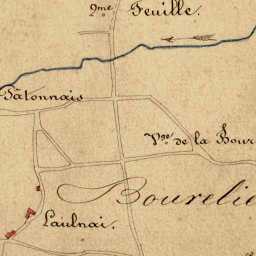 2me Feuille.
Pâtonnais
Vge de la Bour
Bourelie
Laulnai.